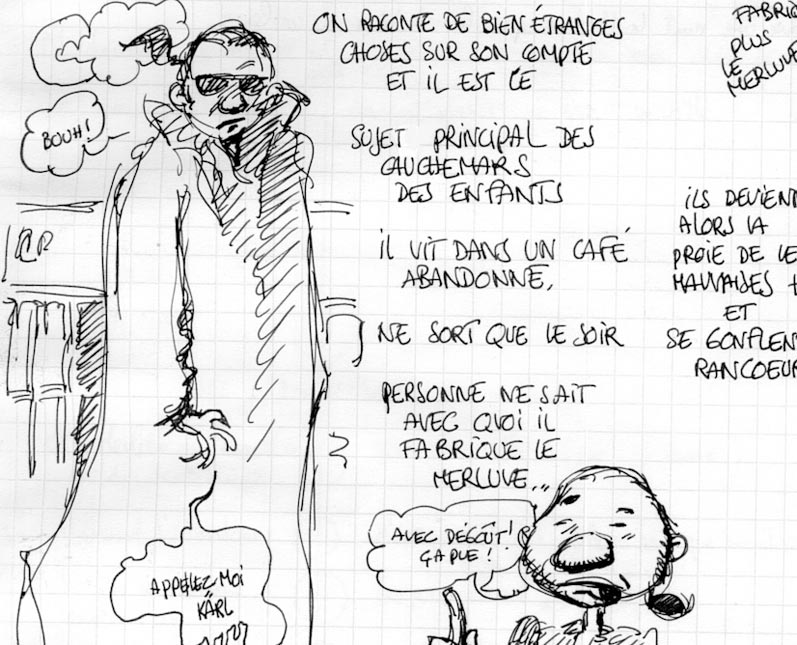 BOUH!
ON RACONTE DE BIEN ÉTRANGES
CHOSES SUR SON COMPTE
ET IL EST LE
SUJET PRINCIPAL DES
CAUCHEMARS
DES ENFANTS
IL VIT DANS UN CAFÉ
ABANDONNE,
NE SORT QUE LE SOIR
PERSONNE NE SAIT
AVEC QUOI IL
FABRIQUE LE
MERLUVE...
AVEC DÉGOÛT!
ÇA PUE!
APPELEZ MOI
KÄRL
FABRIQ
PLUS
LE
MERLUVE
ILS DEVIENN
ALORS LA
PROIE DE LE
MAUVAISES
ET
SE GONFLEN
RANCOEUR